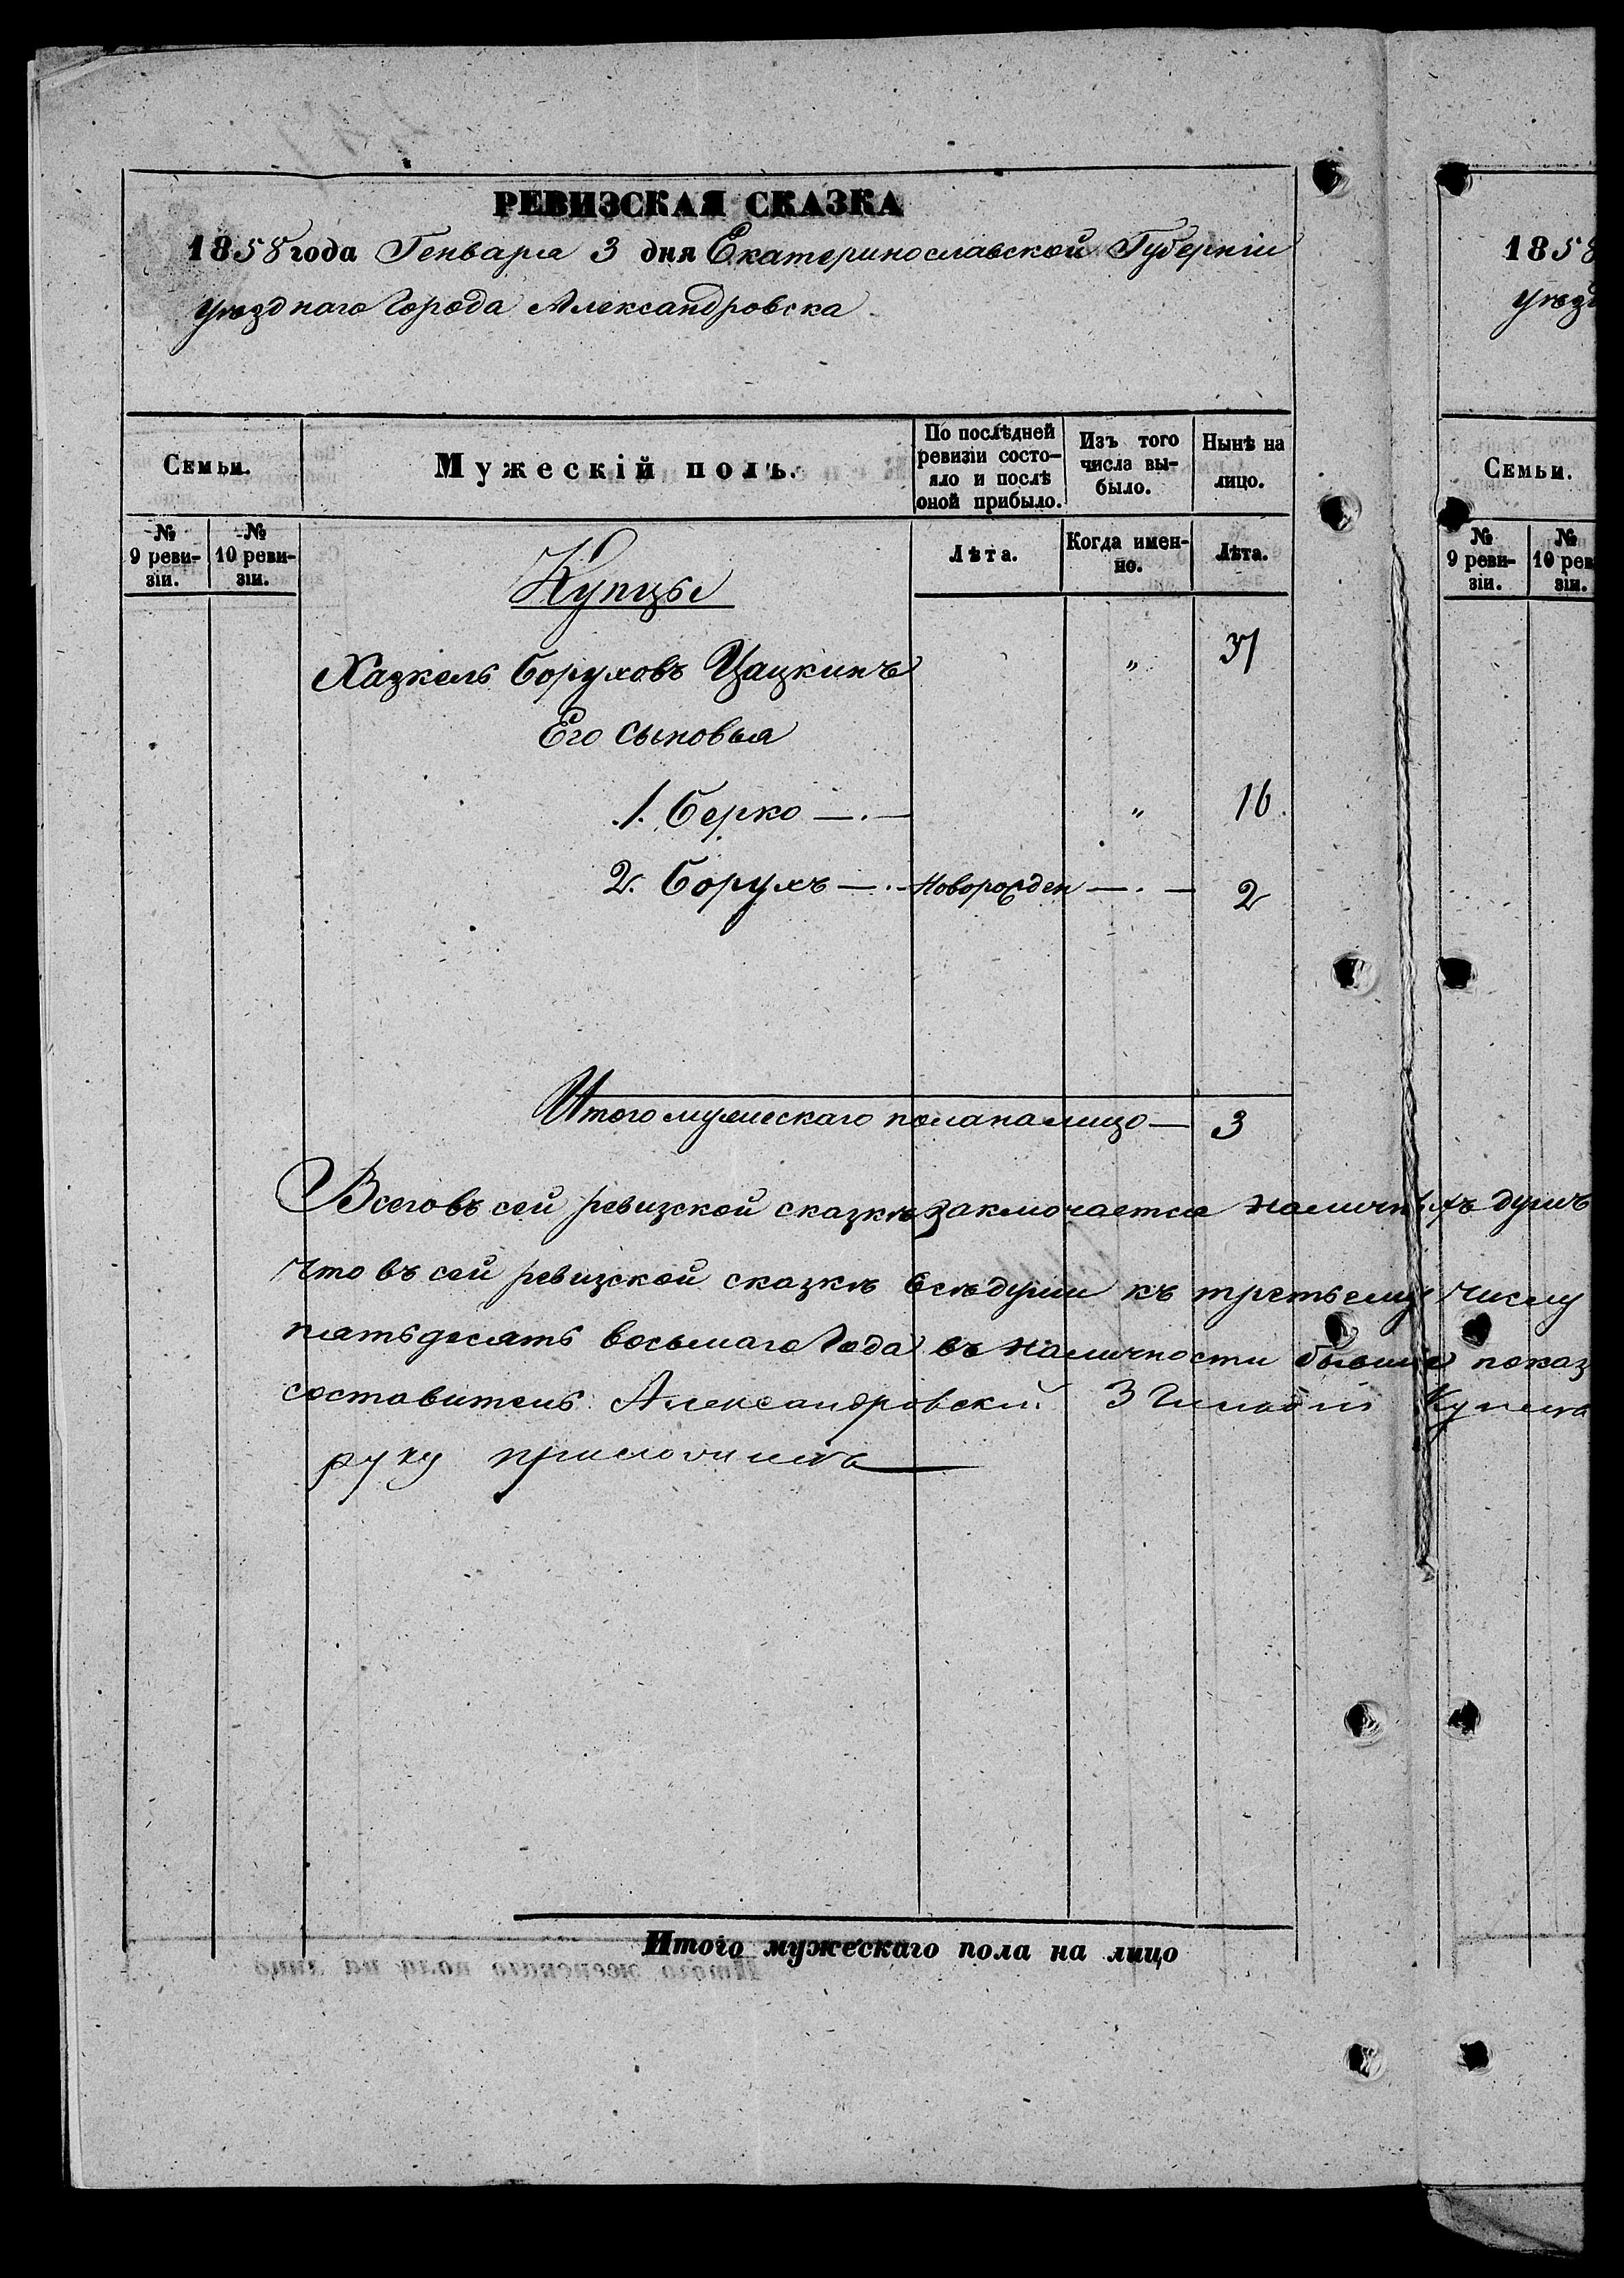 РЕВИЗСКАЯ СКАЗКА
1858 года Генваря 3 дня Екатеринославской Губерніи
уѣзднаго города Александровска
Семьи.
Мужескій полъ.
По послѣдней ревизіи состояло и послѣ оной прибыло.
Изъ того числа выбыло.
Нынѣ на лицо.
№ 9 ревизіи.
№ 10 ревизіи.
Лѣта.
Когда именно.
Лѣта.
Купцы
Хазкель Боруховъ Цацкинъ " 37
Его сыновья
1. Берко —.— " 16.
2. Борухъ —.— Новорожден —.— 2
Итого мужескаго пола на лицо — 3
Всего въ сей ревизской сказкѣ заключается наличныхъ душъ
что въ сей ревизской сказкѣ всѣ души къ третьему числу
пятьдесятъ восьмаго года въ наличности бывшіе показ
составитель Александровскій 3 Гильдіи Купец
руку приложилъ
Итого мужескаго пола на лицо
Итого женскаго пола на лицо
1858
уѣзд
Семьи.
№ 9 ревизіи.
№ 10 рев
зіи.